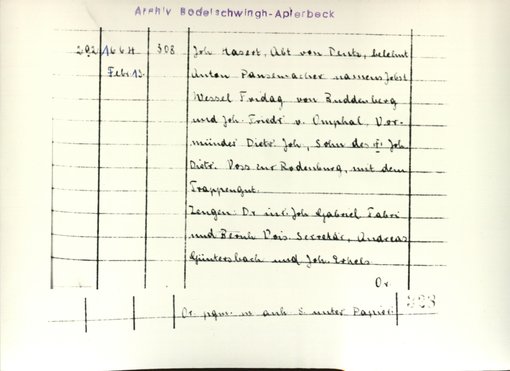 Archiv Bodelschwingh-Aplerbeck
202 1664 308 Joh. Hasert, Abt von Deutz, belehnt
Febr. 13. Anton Pansemacher namens Jobst
Wessel Fridag von Buddenberg
und Joh. Friedr. v. Omphal, Vor-
münder Dietr. Joh., Sohn des † Joh.
Dietr. Voss zur Rodenburg, mit dem
Trappengut.
Zeugen: Dr. iur. Joh. Gabriel Fabri
und Bernh. Vois, Secretär, Andreas
Güntersbach und Joh. Eshels
Or.
Or. pgm. m. anh. S. unter Papier.